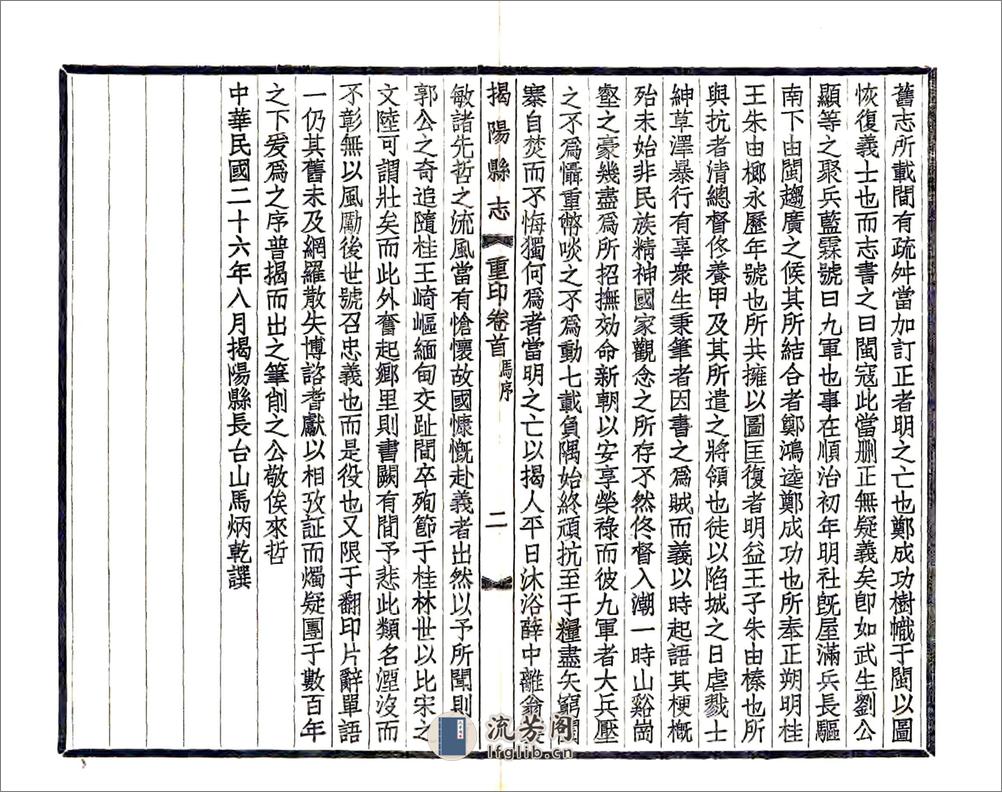 舊志所載間有疏舛當加訂正者明之亡也鄭成功樹幟于閩以圖
恢復義士也而志書之曰閩寇此當删正無疑義矣卽如武生劉公
顯等之聚兵藍霖號曰九軍也事在順治初年明社旣屋滿兵長驅
南下由閩趨廣之候其所結合者鄭鴻逵鄭成功也所奉正朔明桂
王朱由榔永歷年號也所共擁以圖匡復者明益王子朱由榛也所
與抗者清總督佟養甲及其所遣之將領也徒以陷城之日虐戮士
紳草澤暴行有辜衆生秉筆者因書之爲賊而義以時起語其梗槪
殆未始非民族精神國家觀念之所存不然佟督入潮一時山谿崗
壑之豪幾盡爲所招撫効命新朝以安享榮祿而彼九軍者大兵壓
之不爲懾重幣啖之不爲動七載負隅始終頑抗至于糧盡矢窮闔
寨自焚而不悔獨何爲者當明之亡以揭人平日沐浴薛中離翁
揭陽縣志 重印卷首 馬序 二
敏諸先哲之流風當有愴懷故國慷慨赴義者出然以予所聞則
郭公之奇追隨桂王崎嶇緬甸交趾間卒殉節于桂林世以比宋之
文陸可謂壯矣而此外奮起鄉里則書闕有間予悲此類名湮沒而
不彰無以風勵後世號召忠義也而是役也又限于翻印片辭單語
一仍其舊未及網羅散失博諮耆獻以相攷証而燭疑團于數百年
之下爰爲之序普揭而出之筆削之公敬俟來哲
中華民國二十六年八月揭陽縣長台山馬炳乾譔
流芳阁
lfglib.cn